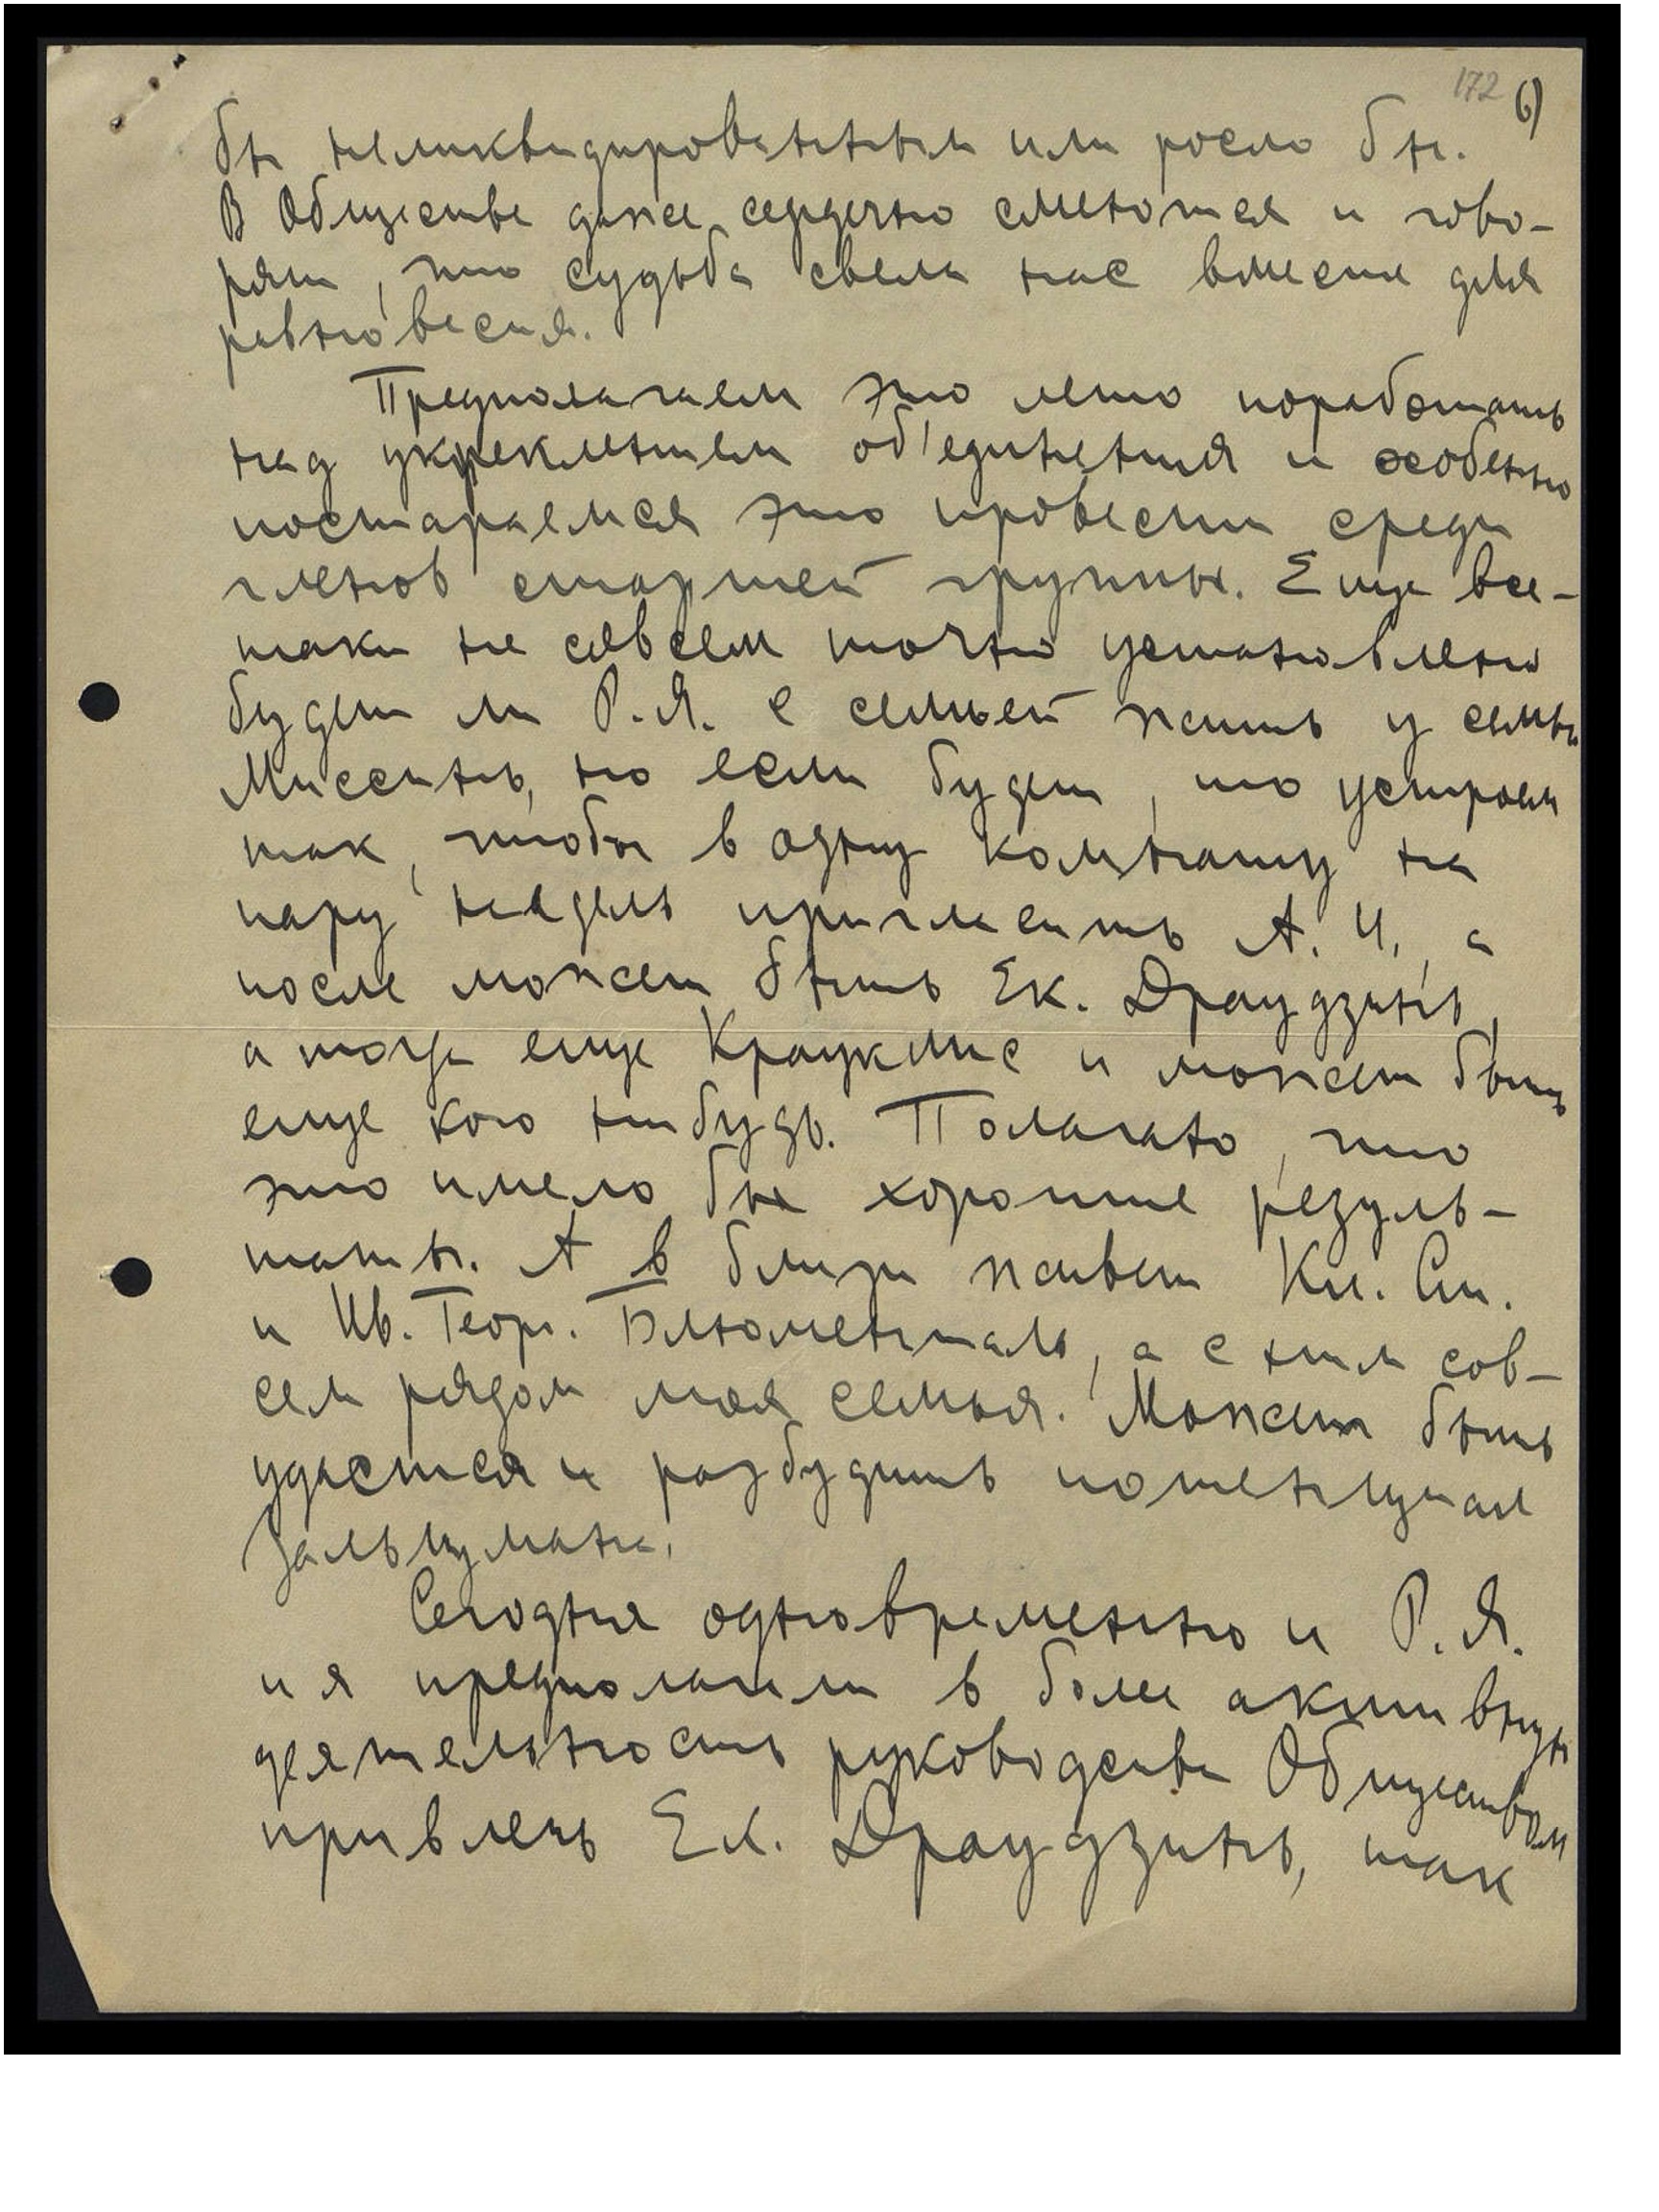 172 6)
бы неликвидированным или росло бы.
В Обществе даже сердечно смеются и гово-
рят, что судьба свела нас вместе для
равновесия.
Предполагаем это лето поработать
над укреплением об'единения и особенно
постараемся это провести среди
членов старшей группы. Еще все-
таки не совсем точно установлено
будет ли Р.Я. с семьей жить у семьи
Миссинь, но если будет, то устроим
так, чтобы в одну комнату на
пару недель пригласить А.И., а
после может быть Ек. Драудзинь,
а тогда еще Крауклис и может быть
еще кого нибудь. Полагаю, что
это имело бы хорошие резуль-
таты. А в близи живет Кл. Ст.
и Ив. Георг. Блюменталь, а с ним сов-
сем рядом моя семья. Может быть
удастся и разбудить потенциал
Зальцмана.
Сегодня одновременно и Р.Я.
и я предполагали в более активную
деятельность руководства Обществом
привлечь Ек. Драудзинь, так